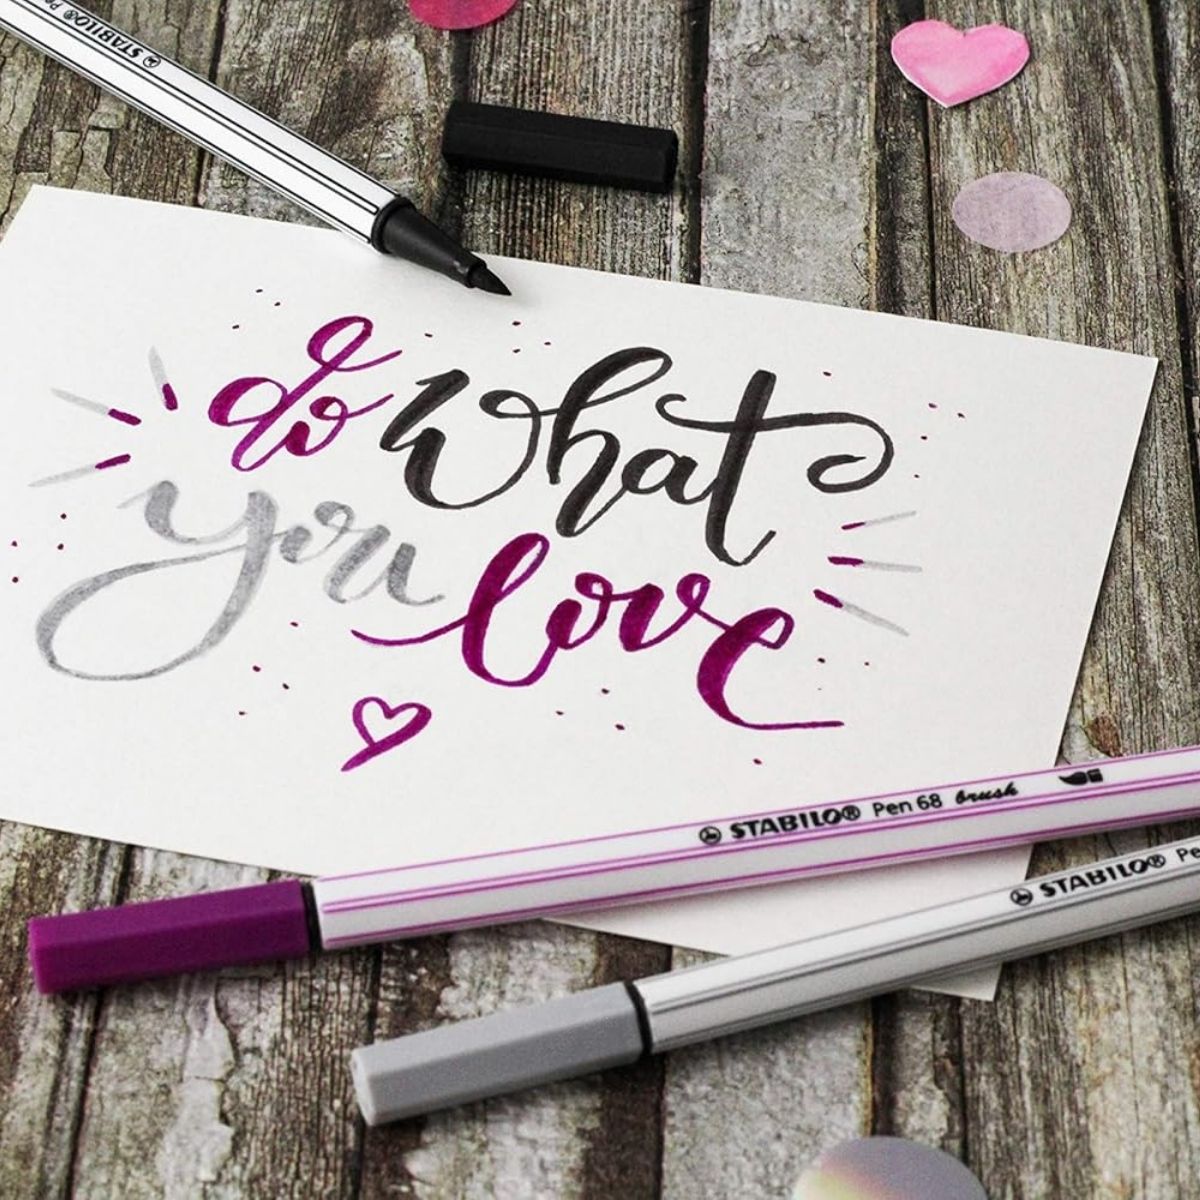 STABILO® Pe
do what
you love
STABILO® Pen 68 brush
STABILO® Pe